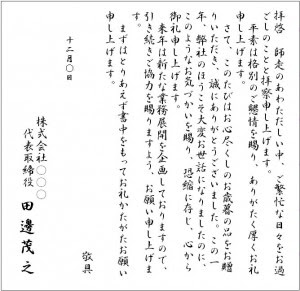 拝啓　師走のあわただしい中、ご繁忙な日々をお過
ごしのことと拝察申し上げます。
平素は格別のご懇情を賜り、ありがたく厚くお礼
申し上げます。
さて、このたびはお心尽くしのお歳暮の品をお贈
りいただき、誠にありがとうございました。この一
年、弊社のほうこそ大変お世話になりましたのに、
このようなお気づかいを賜り、恐縮に存じ、心から
御礼申し上げます。
来年は新たな業務展開を企画しておりますので、
引き続きご協力を賜りますよう、お願い申し上げま
す。
まずはとりあえず書中をもってお礼かたがたお願い
申し上げます。
敬具
十二月〇日
株式会社〇〇〇
代表取締役　田邊茂之